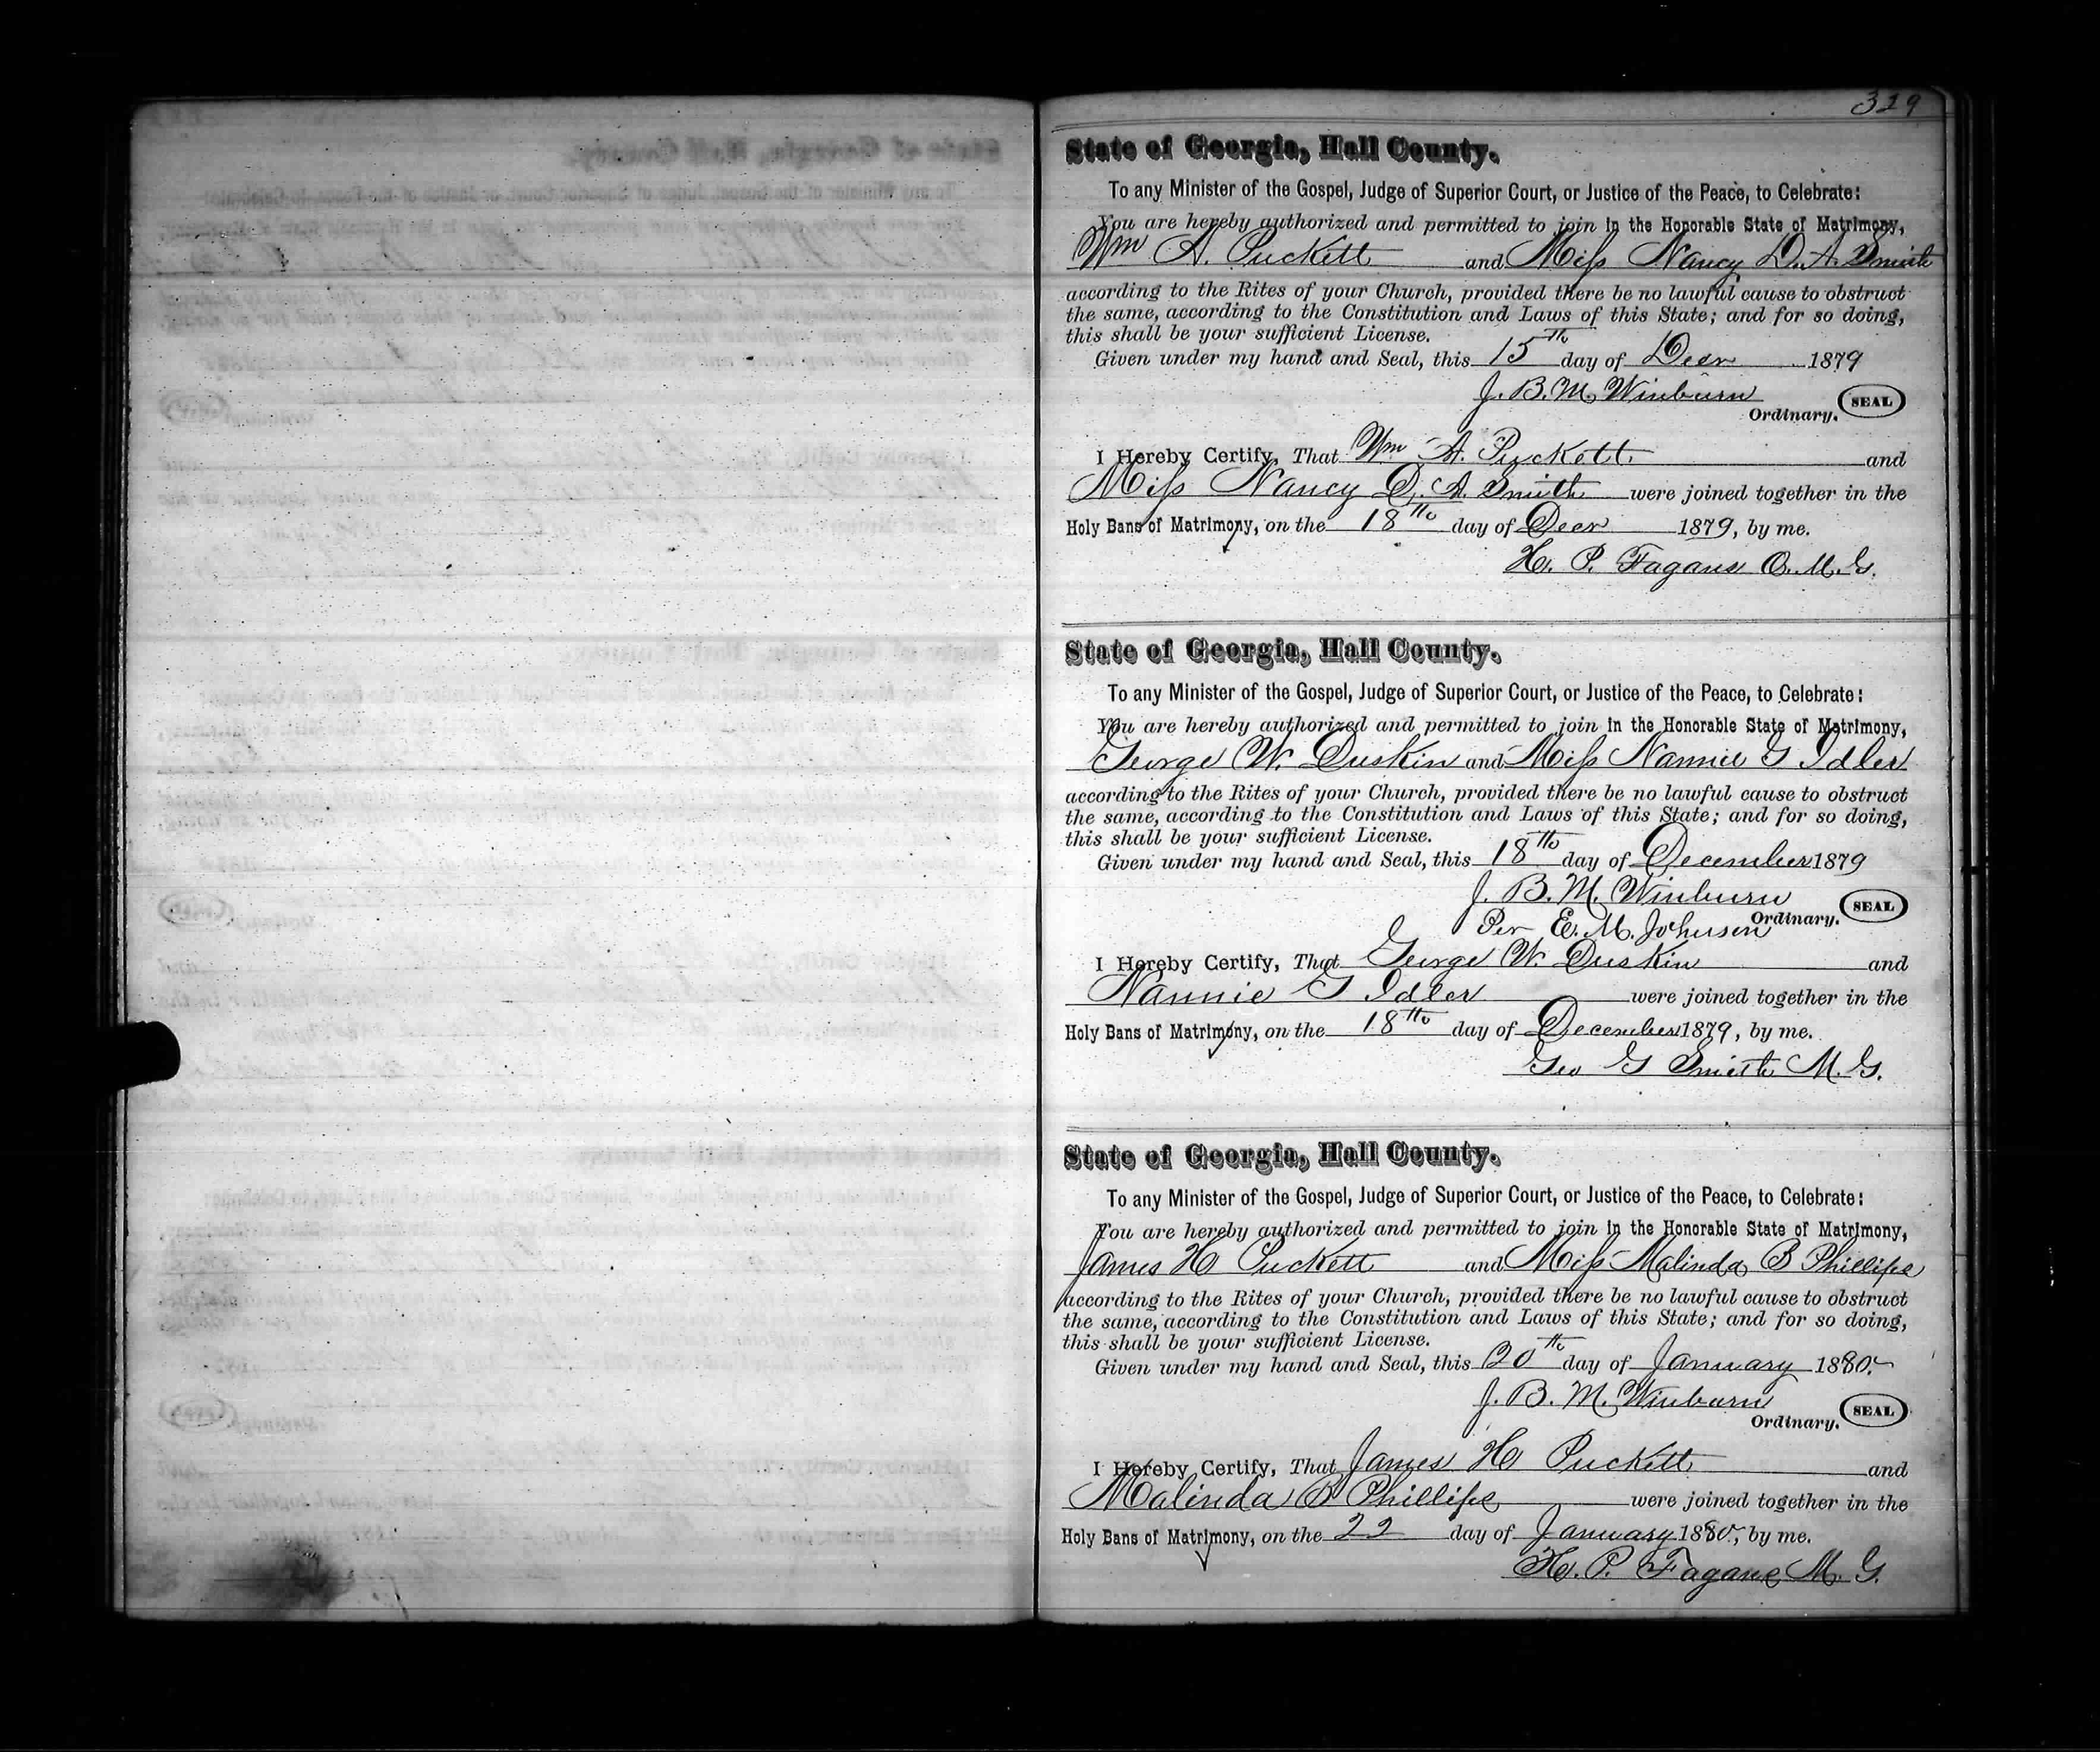 329
State of Georgia, Hall County.
To any Minister of the Gospel, Judge of Superior Court, or Justice of the Peace, to Celebrate:
You are hereby authorized and permitted to join in the Honorable State of Matrimony,
Wm A. Puckett and Miss Nancy D. A. Smith
according to the Rites of your Church, provided there be no lawful cause to obstruct
the same, according to the Constitution and Laws of this State; and for so doing,
this shall be your sufficient License.
Given under my hand and Seal, this 15th day of Decr 1879
J. B. M. Winburn
Ordinary. SEAL
I Hereby Certify, That Wm A. Puckett and
Miss Nancy D. A. Smith were joined together in the
Holy Bans of Matrimony, on the 18th day of Decr 1879, by me.
H. P. Fagans O. M. G.
State of Georgia, Hall County.
To any Minister of the Gospel, Judge of Superior Court, or Justice of the Peace, to Celebrate:
You are hereby authorized and permitted to join in the Honorable State of Matrimony,
George W. Duskin and Miss Nannie G Idler
according to the Rites of your Church, provided there be no lawful cause to obstruct
the same, according to the Constitution and Laws of this State; and for so doing,
this shall be your sufficient License.
Given under my hand and Seal, this 18th day of December 1879
J. B. M. Winburn
Per E. M. Johnson Ordinary. SEAL
I Hereby Certify, That George W. Duskin and
Nannie G Idler were joined together in the
Holy Bans of Matrimony, on the 18th day of December 1879, by me.
Geo G Smith M. G.
State of Georgia, Hall County.
To any Minister of the Gospel, Judge of Superior Court, or Justice of the Peace, to Celebrate:
You are hereby authorized and permitted to join in the Honorable State of Matrimony,
James H Puckett and Miss Malinda B Phillips
according to the Rites of your Church, provided there be no lawful cause to obstruct
the same, according to the Constitution and Laws of this State; and for so doing,
this shall be your sufficient License.
Given under my hand and Seal, this 20th day of January 1880.
J. B. M. Winburn
Ordinary. SEAL
I Hereby Certify, That James H Puckett and
Malinda B Phillips were joined together in the
Holy Bans of Matrimony, on the 22 day of January 1880, by me.
H. P. Fagans M. G.